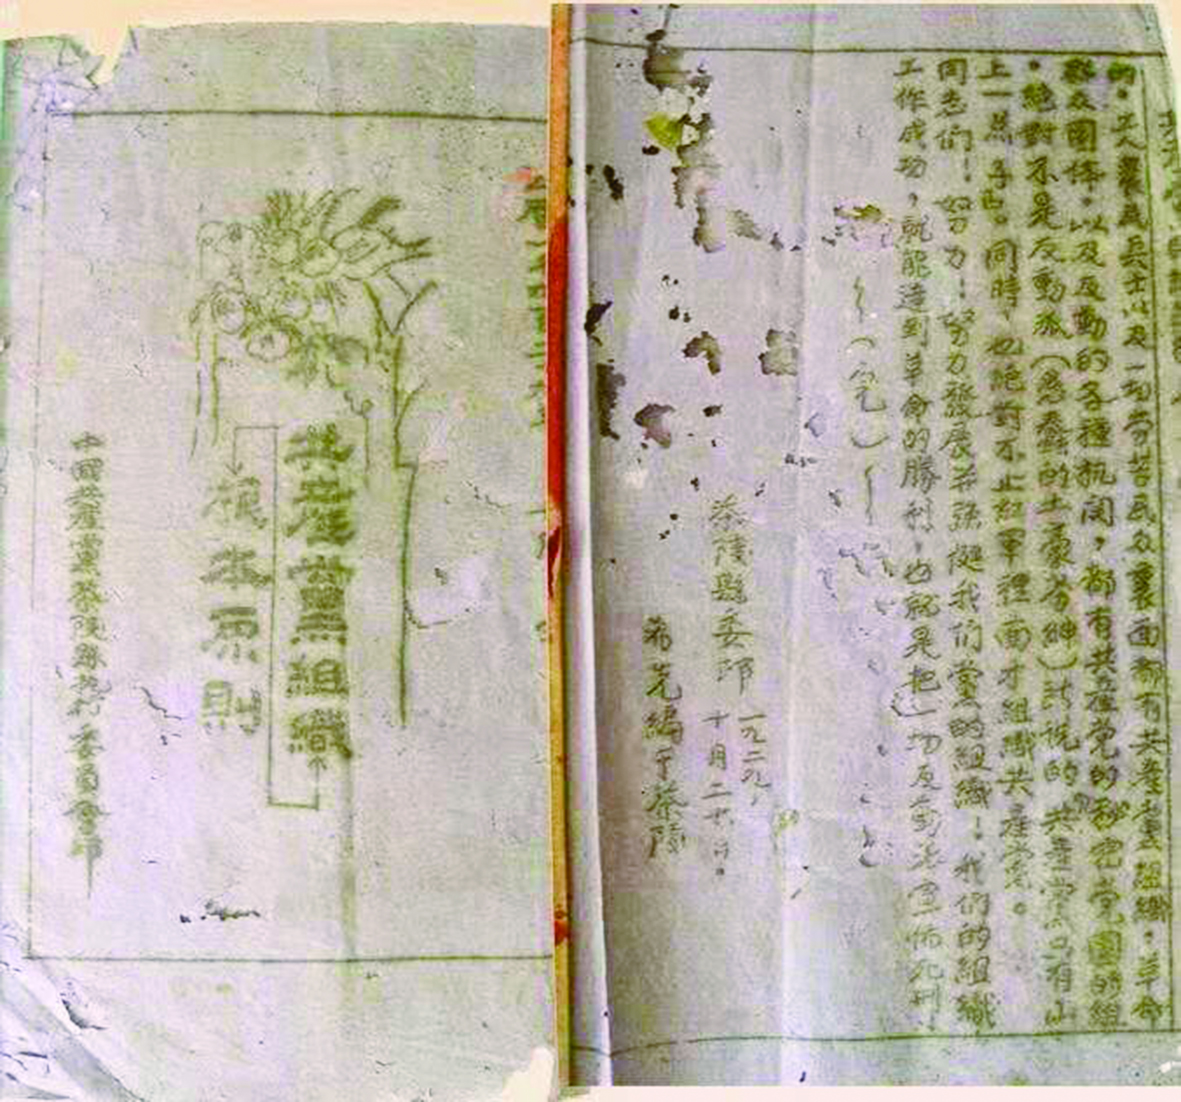 共產黨組織
根本原則
中國共產黨茶陵縣執行委員會印
的。工人農民兵士以及一切劳苦民众裏面都有共產黨組織。革命
團体,以及反動的各種机関,都有共產党的秘密党團的組
。絶對不是反動派(愚蠢的土豪劣紳)所說的共產党只有山
上一点。同時,也絶對不止紅軍裡面才組織共產党。
同志們!努力!努力發展并強健我们党的組織!我們的組織
工作成功,就能達到革命的勝利,也就是把一切反動派宣佈死刑!
(完)
茶陵縣委印
一九二九,
十月二十日。
光編于茶陵